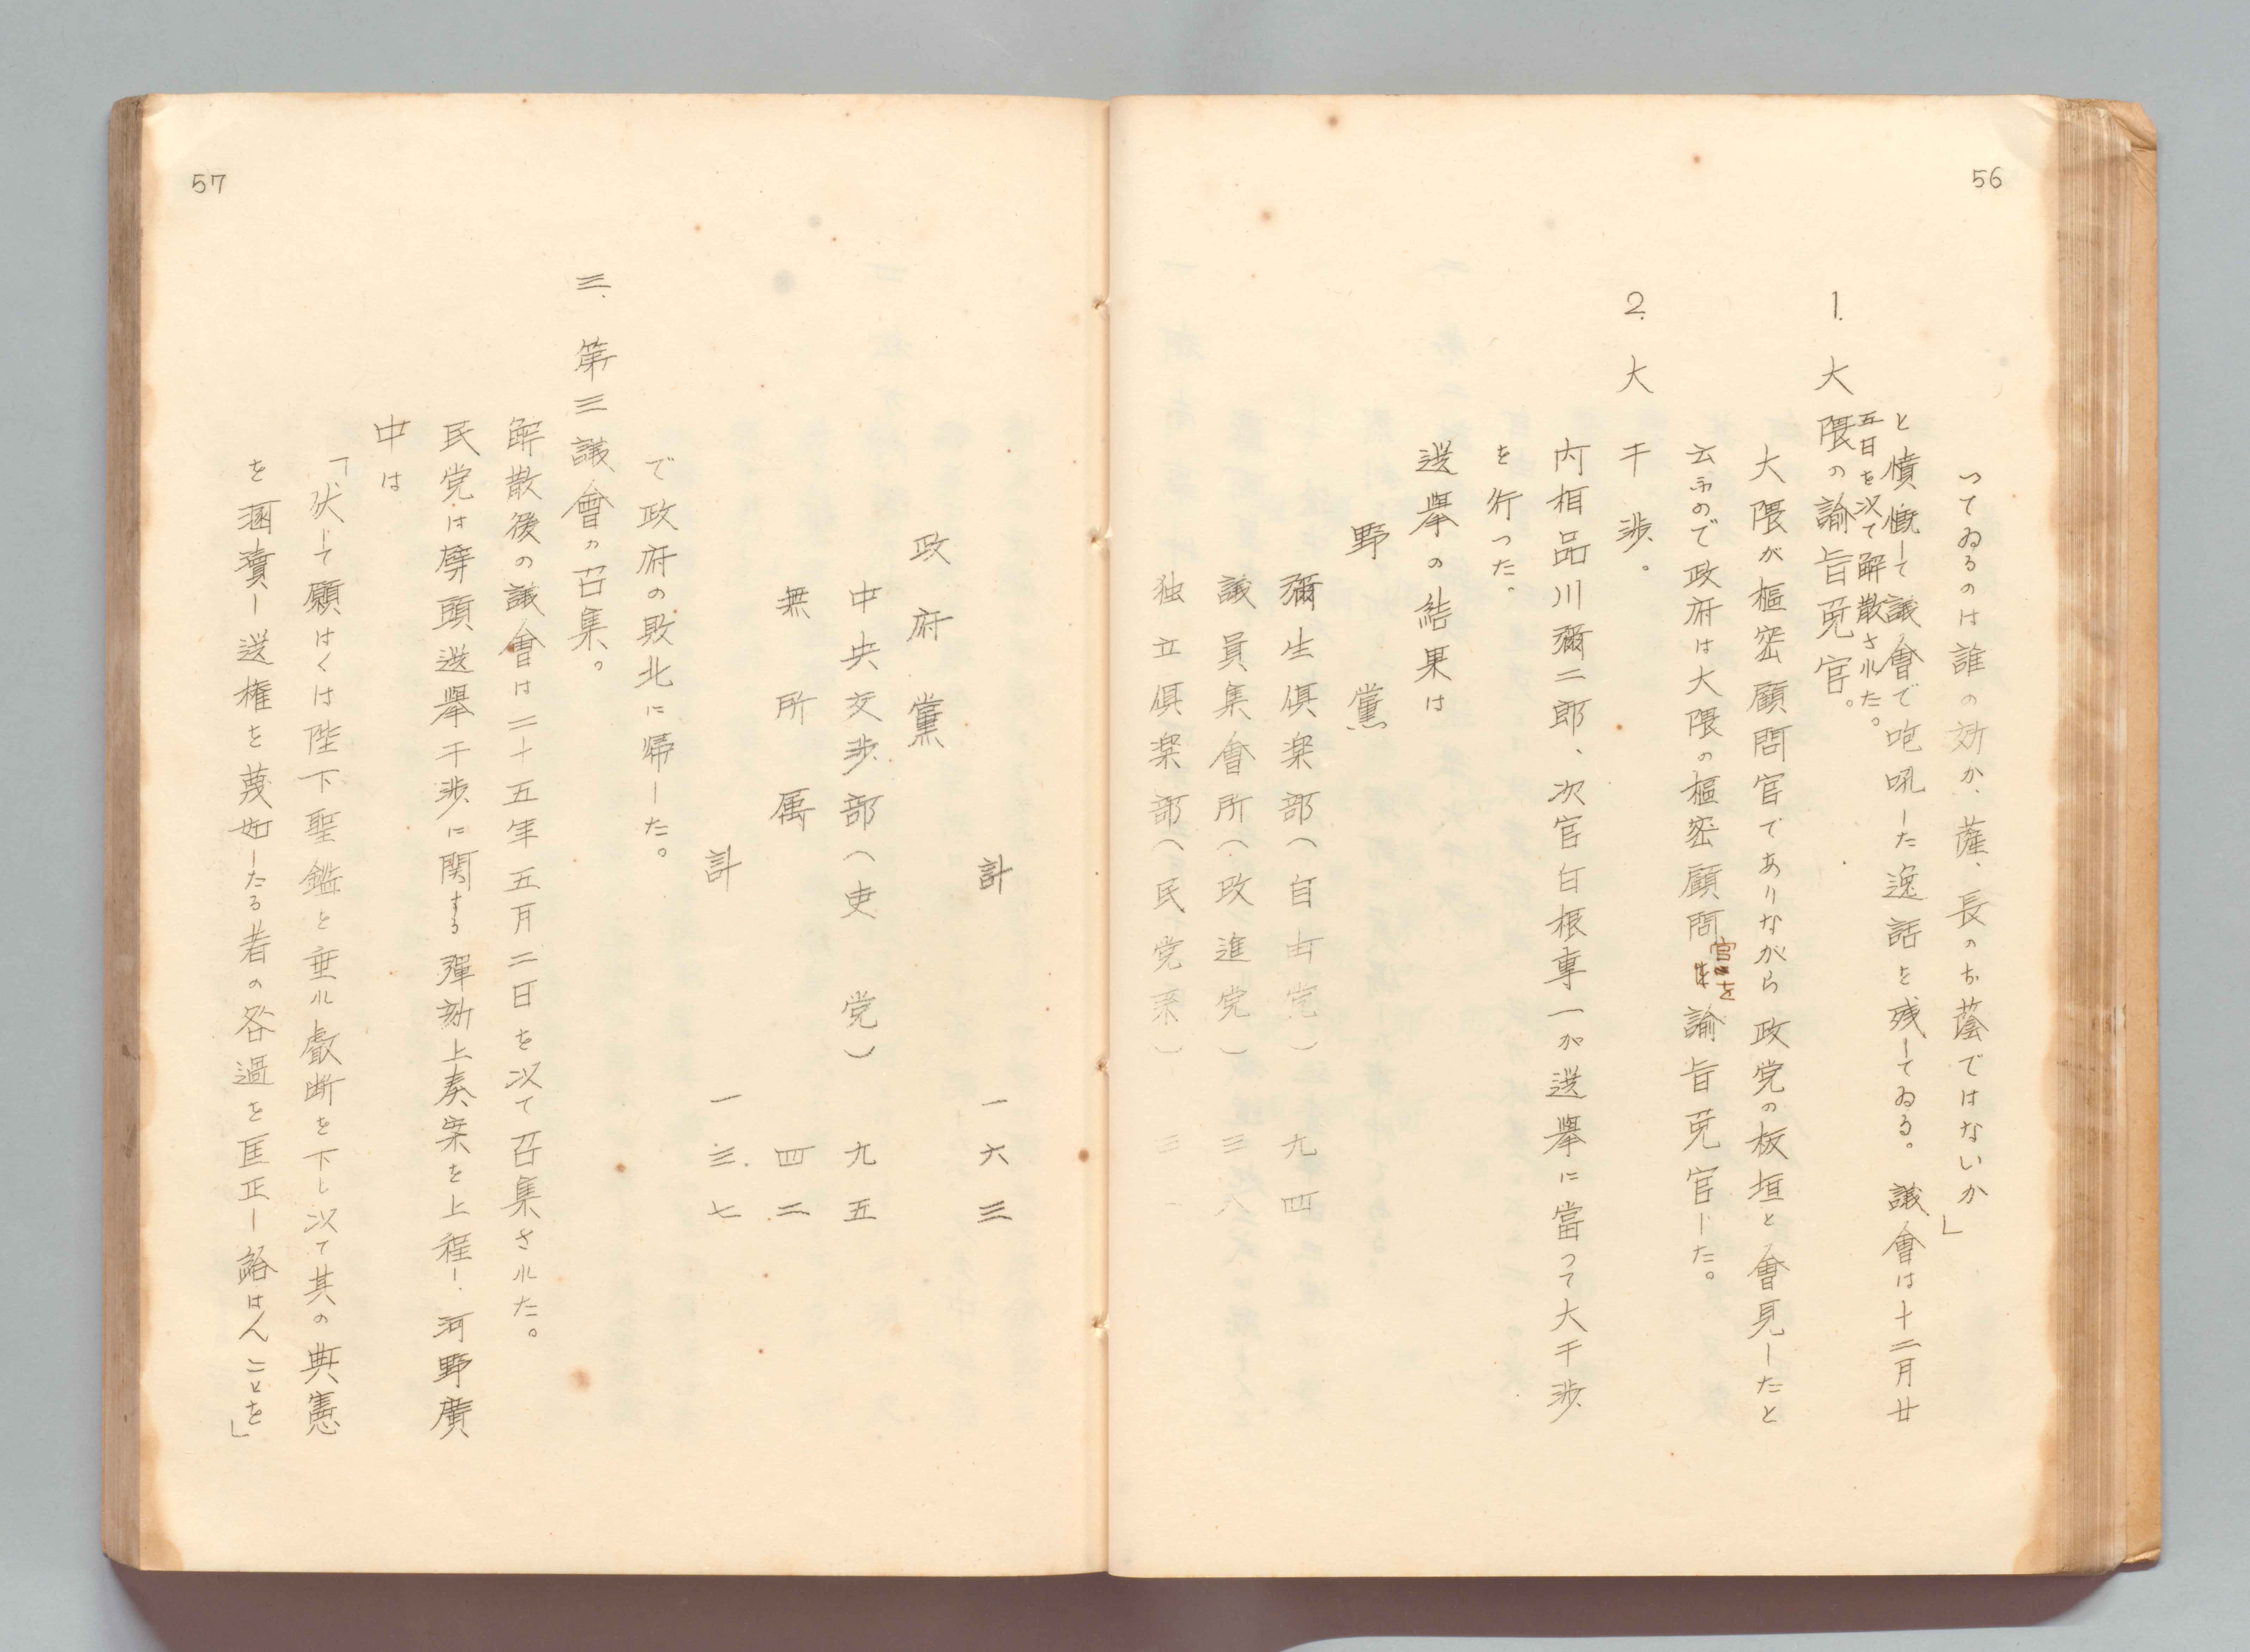 56
つてゐるのは誰の効か、薩、長のお蔭ではないか」
と憤慨して議會で咆吼した逸話を残してゐる。議會は十二月廿
五日を以て解散された。
1. 大隈の諭旨免官。
大隈が樞密顧問官でありながら政党の板垣と會見したと
云ふので政府は大隈の樞密顧問官を諭旨免官した。
2. 大干渉。
内相品川彌二郎、次官白根専一が選擧に當つて大干渉
を行つた。
選擧の結果は
野黨
彌生倶楽部（自由党） 九四
議員集會所（改進党） 三八
独立倶楽部（民党系） 三一
57
計 一六三
政府黨
中央交渉部（吏党） 九五
無所属 四二
計 一三七
で政府の敗北に帰した。
三、第三議會の召集。
解散後の議會は二十五年五月二日を以て召集された。
民党は劈頭選擧干渉に関する彈劾上奏案を上程し、河野廣
中は
「伏して願はくは陛下聖鑑を垂れ叡断を下し以て其の典憲
を凅瀆し選権を蔑如したる者の咎過を匡正し給はんことを」